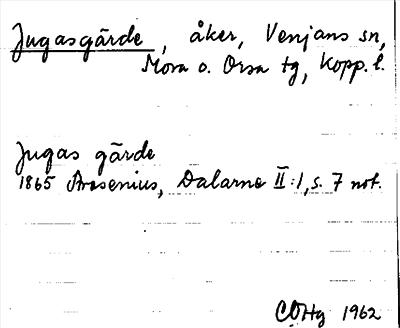 Jugasgärde, åker, Venjans sn,
Mora o. Orsa tg, Kopp. l.
Jugas gärde
1865 Arosenius, Dalarne II:1, s. 7 not.
COHg 1962